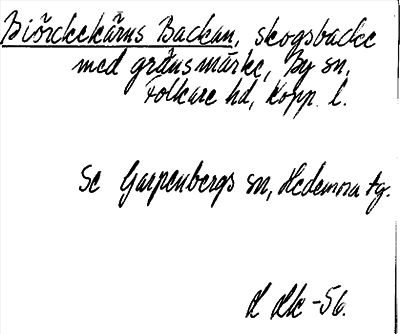 Biörckekärns Backan, skogsbacke
med gränsmärke, By sn,
Folkare hd, Kopp. l.
Se Garpenbergs sn, Hedemora tg.